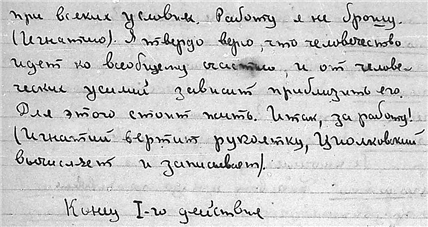 при всяких условиях. Работу я не брошу.
(Игнатию). Я твердо верю, что человечество
идет ко всеобщему счастью, и от челове-
ческих усилий зависит приблизить его.
Для этого стоит жить. Итак, за работу!
(Игнатий вертит рукоятку, Циолковский
вычисляет и записывает).
Конец I-го действия